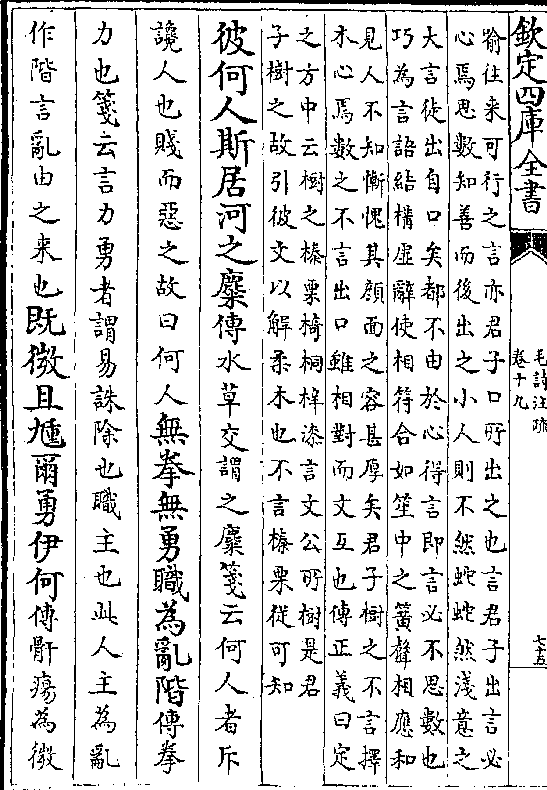 欽定四庫全書
毛詩注疏
卷十九
七十五
喻往来可行之言亦君子口所出之也言君子出言必
心焉思數知善而後出之小人則不然蛇蛇然淺意之
大言徒出自口矣都不由於心得言即言必不思數也
巧為言語結構虛辭使相符合如笙中之簧聲相應和
見人不知慚愧其顔面之容甚厚矣君子樹之不言擇
木心焉數之不言出口雖相對而文互也傳正義曰定
之方中云樹之榛栗椅桐梓漆言文公所樹是君
子樹之故引彼文以解柔木也不言榛栗從可知
彼何人斯居河之麋傳水草交謂之麋箋云何人者斥
讒人也賤而惡之故曰何人無拳無勇職為亂階傳拳
力也箋云言力勇者謂易誅除也職主也此人主為亂
作階言亂由之来也既微且尰爾勇伊何傳骭瘍為微